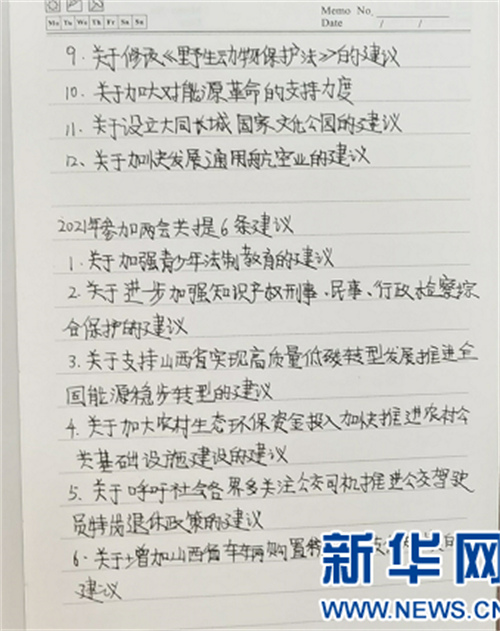 Memo No.
Mo Tu We Th Fr Sa Su
Date / /
9. 关于修改《野生动物保护法》的建议
10. 关于加大对能源革命的支持力度
11. 关于设立大同长城国家文化公园的建议
12、关于加快发展通用航空业的建议
2021年参加两会共提6条建议
1. 关于加强青少年法制教育的建议
2. 关于进步加强知识产权刑事、民事、行政检察综
合保护的建议
3. 关于支持山西省实现高质量低碳转型发展推进全
国能源稳步转型的建议
4. 关于加大农村生态环保资金投入加快推进农村公
共基础设施建设的建议
5. 关于呼吁社会各界多关注公交司机推进公交驾驶
员特岗退休政策的建议
6. 关于增加山西省车辆购置税
建议
新华网
WWW.NEWS.CN